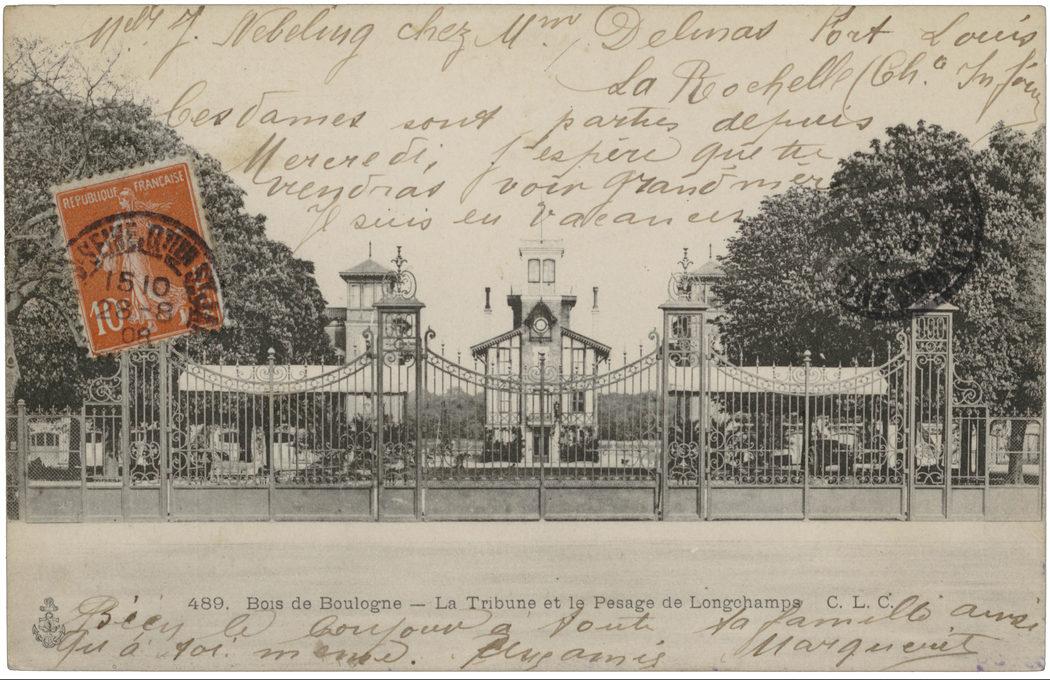 Melle J. Nebeling chez Mme Delmas Port Louis
La Rochelle (Ch. Inf
Ces dames sont parties depuis
Mercredi, j'espère que tu
viendras voir grand mère
Je suis en vacances
REPUBLIQUE FRANÇAISE
15 10
28 - 8
08
10
489. Bois de Boulogne — La Tribune et le Pesage de Longchamps C. L. C.
le bonjour à toute ta famille ainsi
qu'à toi même. Marguerite